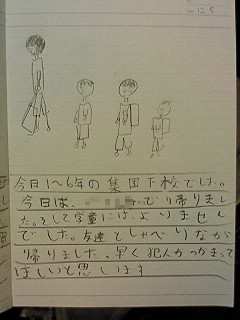 -125
今日1~6年の集団下校でした。
今日は、で帰りまし
た。そして学童には、よりません
でした。友達としゃべりなが
帰りました。早く犯人がつかまって
ほしいと思します